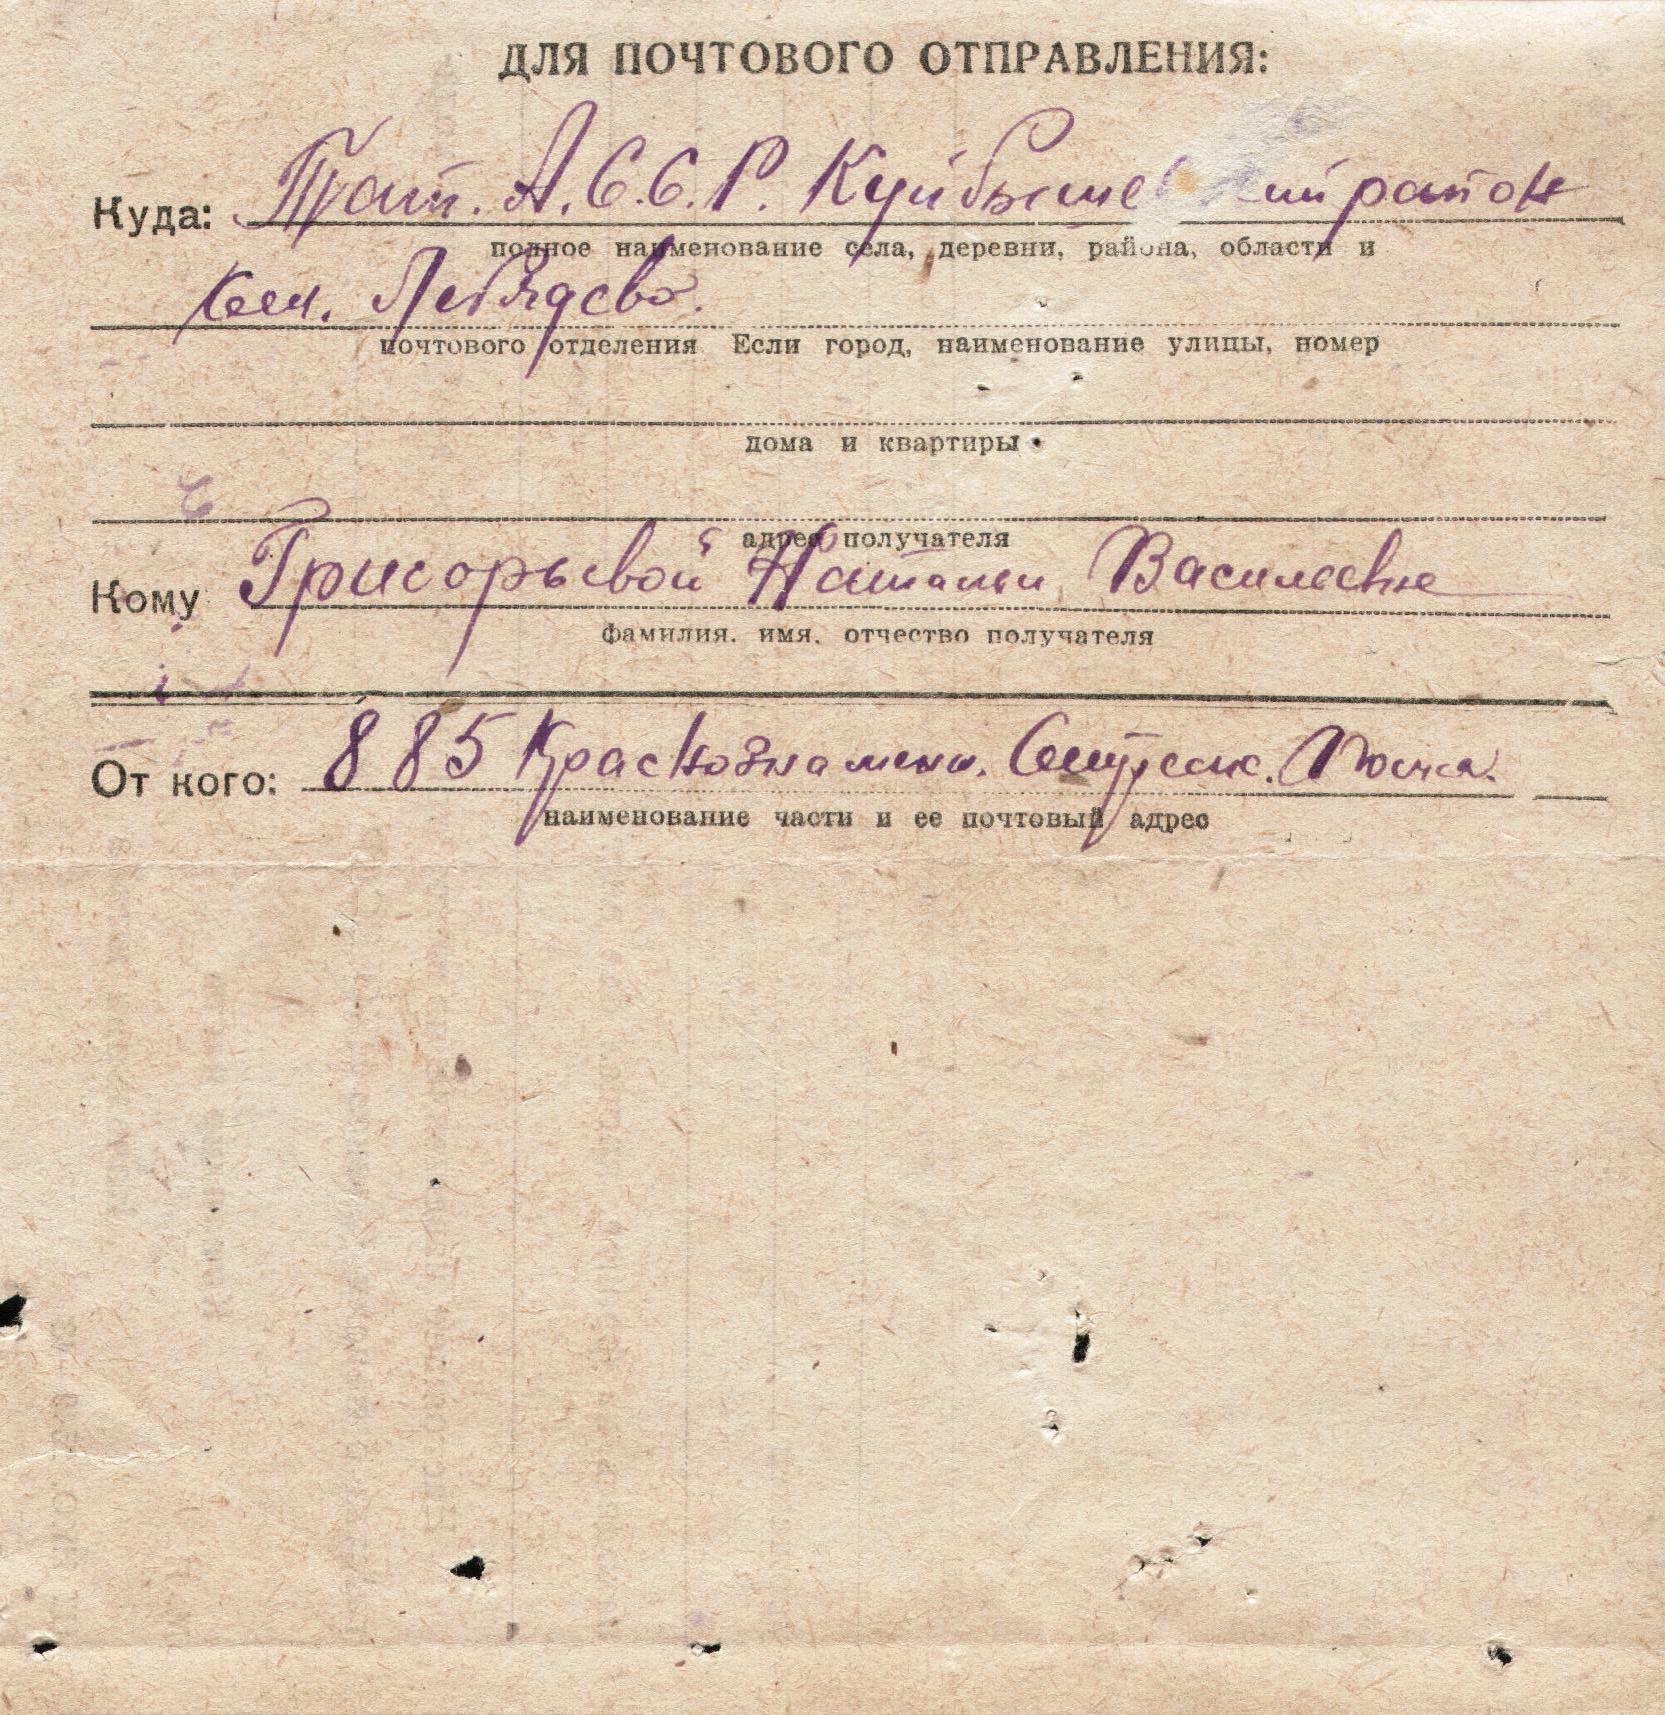 ДЛЯ ПОЧТОВОГО ОТПРАВЛЕНИЯ:
Куда: Тат. А.С.С.Р. Куйбышевский район
полное наименование села, деревни, района, области и
сел. Лебядево.
почтового отделения Если город, наименование улицы, номер
дома и квартиры
адрес получателя
Кому Григорьевой Натальи Васильевне
Фамилия. имя. отчество получателя
От кого: 885 Краснознамен. Почта.
наименование части и ее почтовый адрес